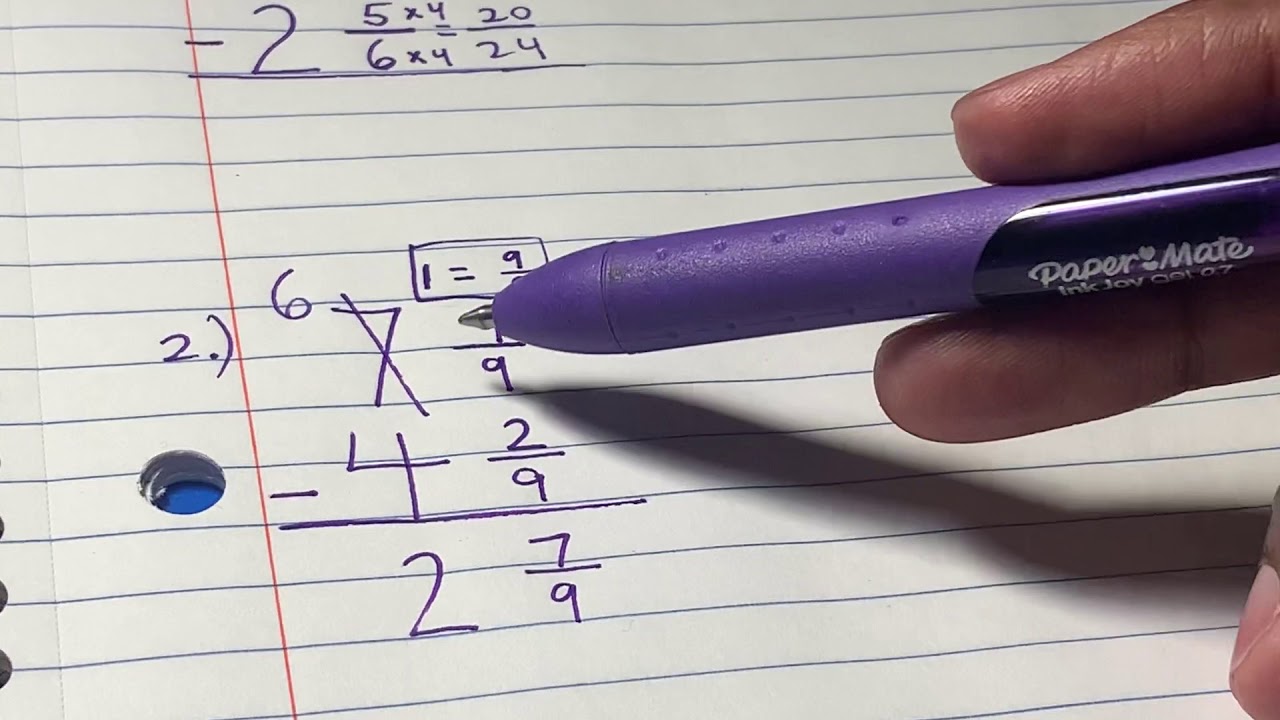 - 2 5 ×4 = 20
6 ×4 24
6 1 = 9
2.) 7
9
- 4 2
9
2 7
9
Paper Mate
InkJoy Gel 0.7